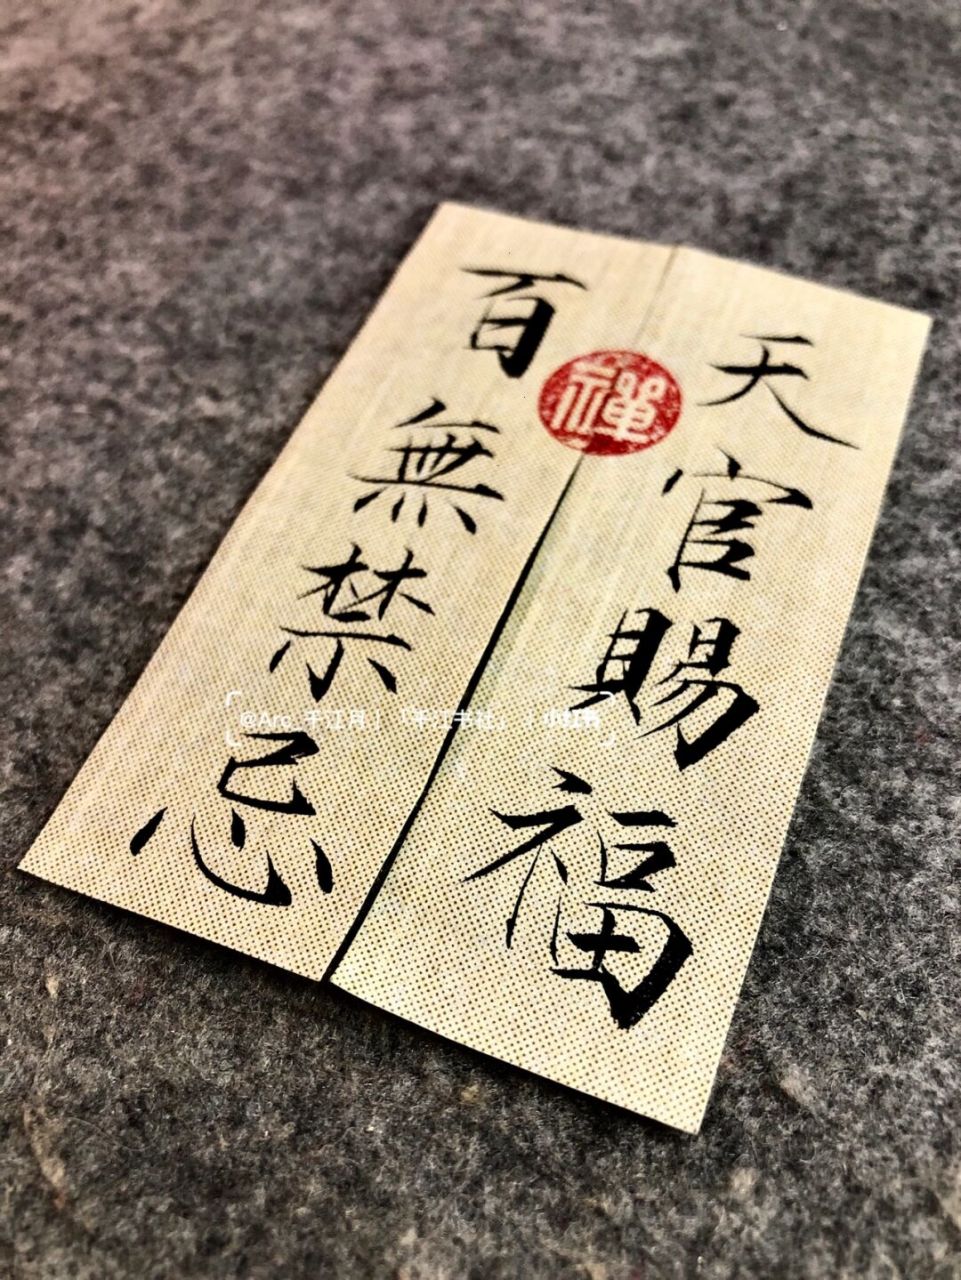 天官賜福
百無禁忌
禪
@Aro_千江月 | 「千江书社」 | 小红书